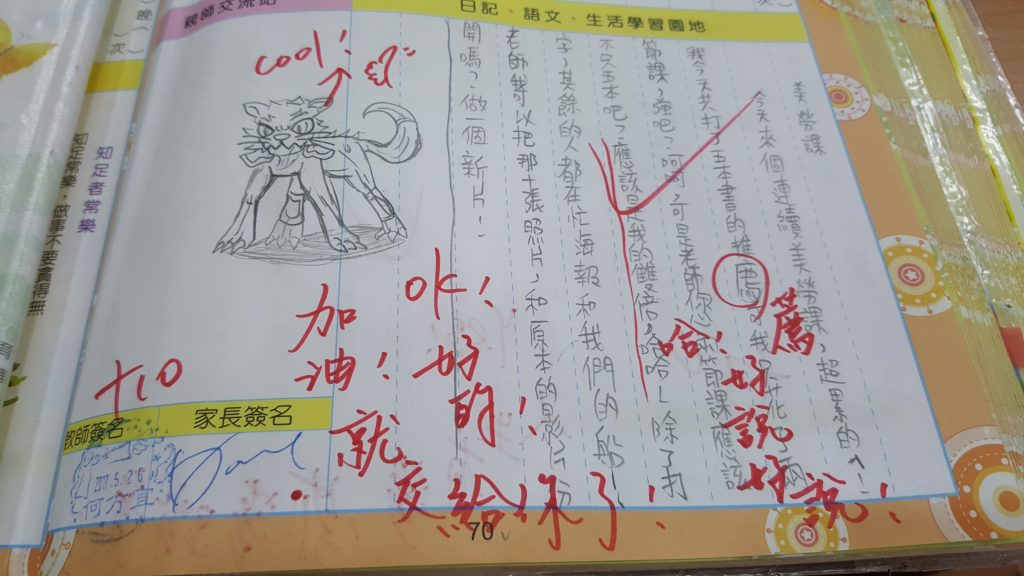 日記、語文、生活學習園地
親師交流站
美勞課
今天來個連續美勞課,超累的ㄟ!
我今天共打了五本書的推廌,我只花兩
節課,強吧?呵呵,可是老師你 節課應該
不只五本吧?應該是我的雙倍,哈哈!除了打
字,其餘的人都在忙海報和我們的船!
老師我可以把那一張照片,和原本的影片分
開嗎?做一個新片!
薦
好說好說!
哈!
OK!好的!
加油!
就交給你了!
cool!
+10
教師簽名
家長簽名
2017.5.26
70
晚
次
知足者常樂
知足常樂,做事不要貪得無